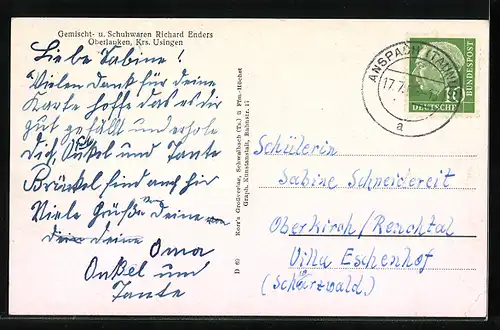 Gemischt- u. Schuhwaren Richard Enders
Oberlauken, Krs. Usingen
Liebe Sabine!
Vielen Dank für deine
Karte hoffe das es dir
gut gefällt und erhole
Dich, Onkel und Tante
Brückel sind auch hier
Viele Grüße deine
deine
Oma
Onkel und
Tante
D 60
Knorr's Großvertrieb, Schwalbach (Ts.) ü Ffm.-Höchst
Graph. Kunstanstalt, Bahnstr. 17
ANSPACH (TAUN
17.7.
a
10
DEUTSCHE
BUNDESPOST
Schülerin
Sabine Schneidereit
Oberkirch/Renchtal
Villa Eschenhof
(Schwarzwald)